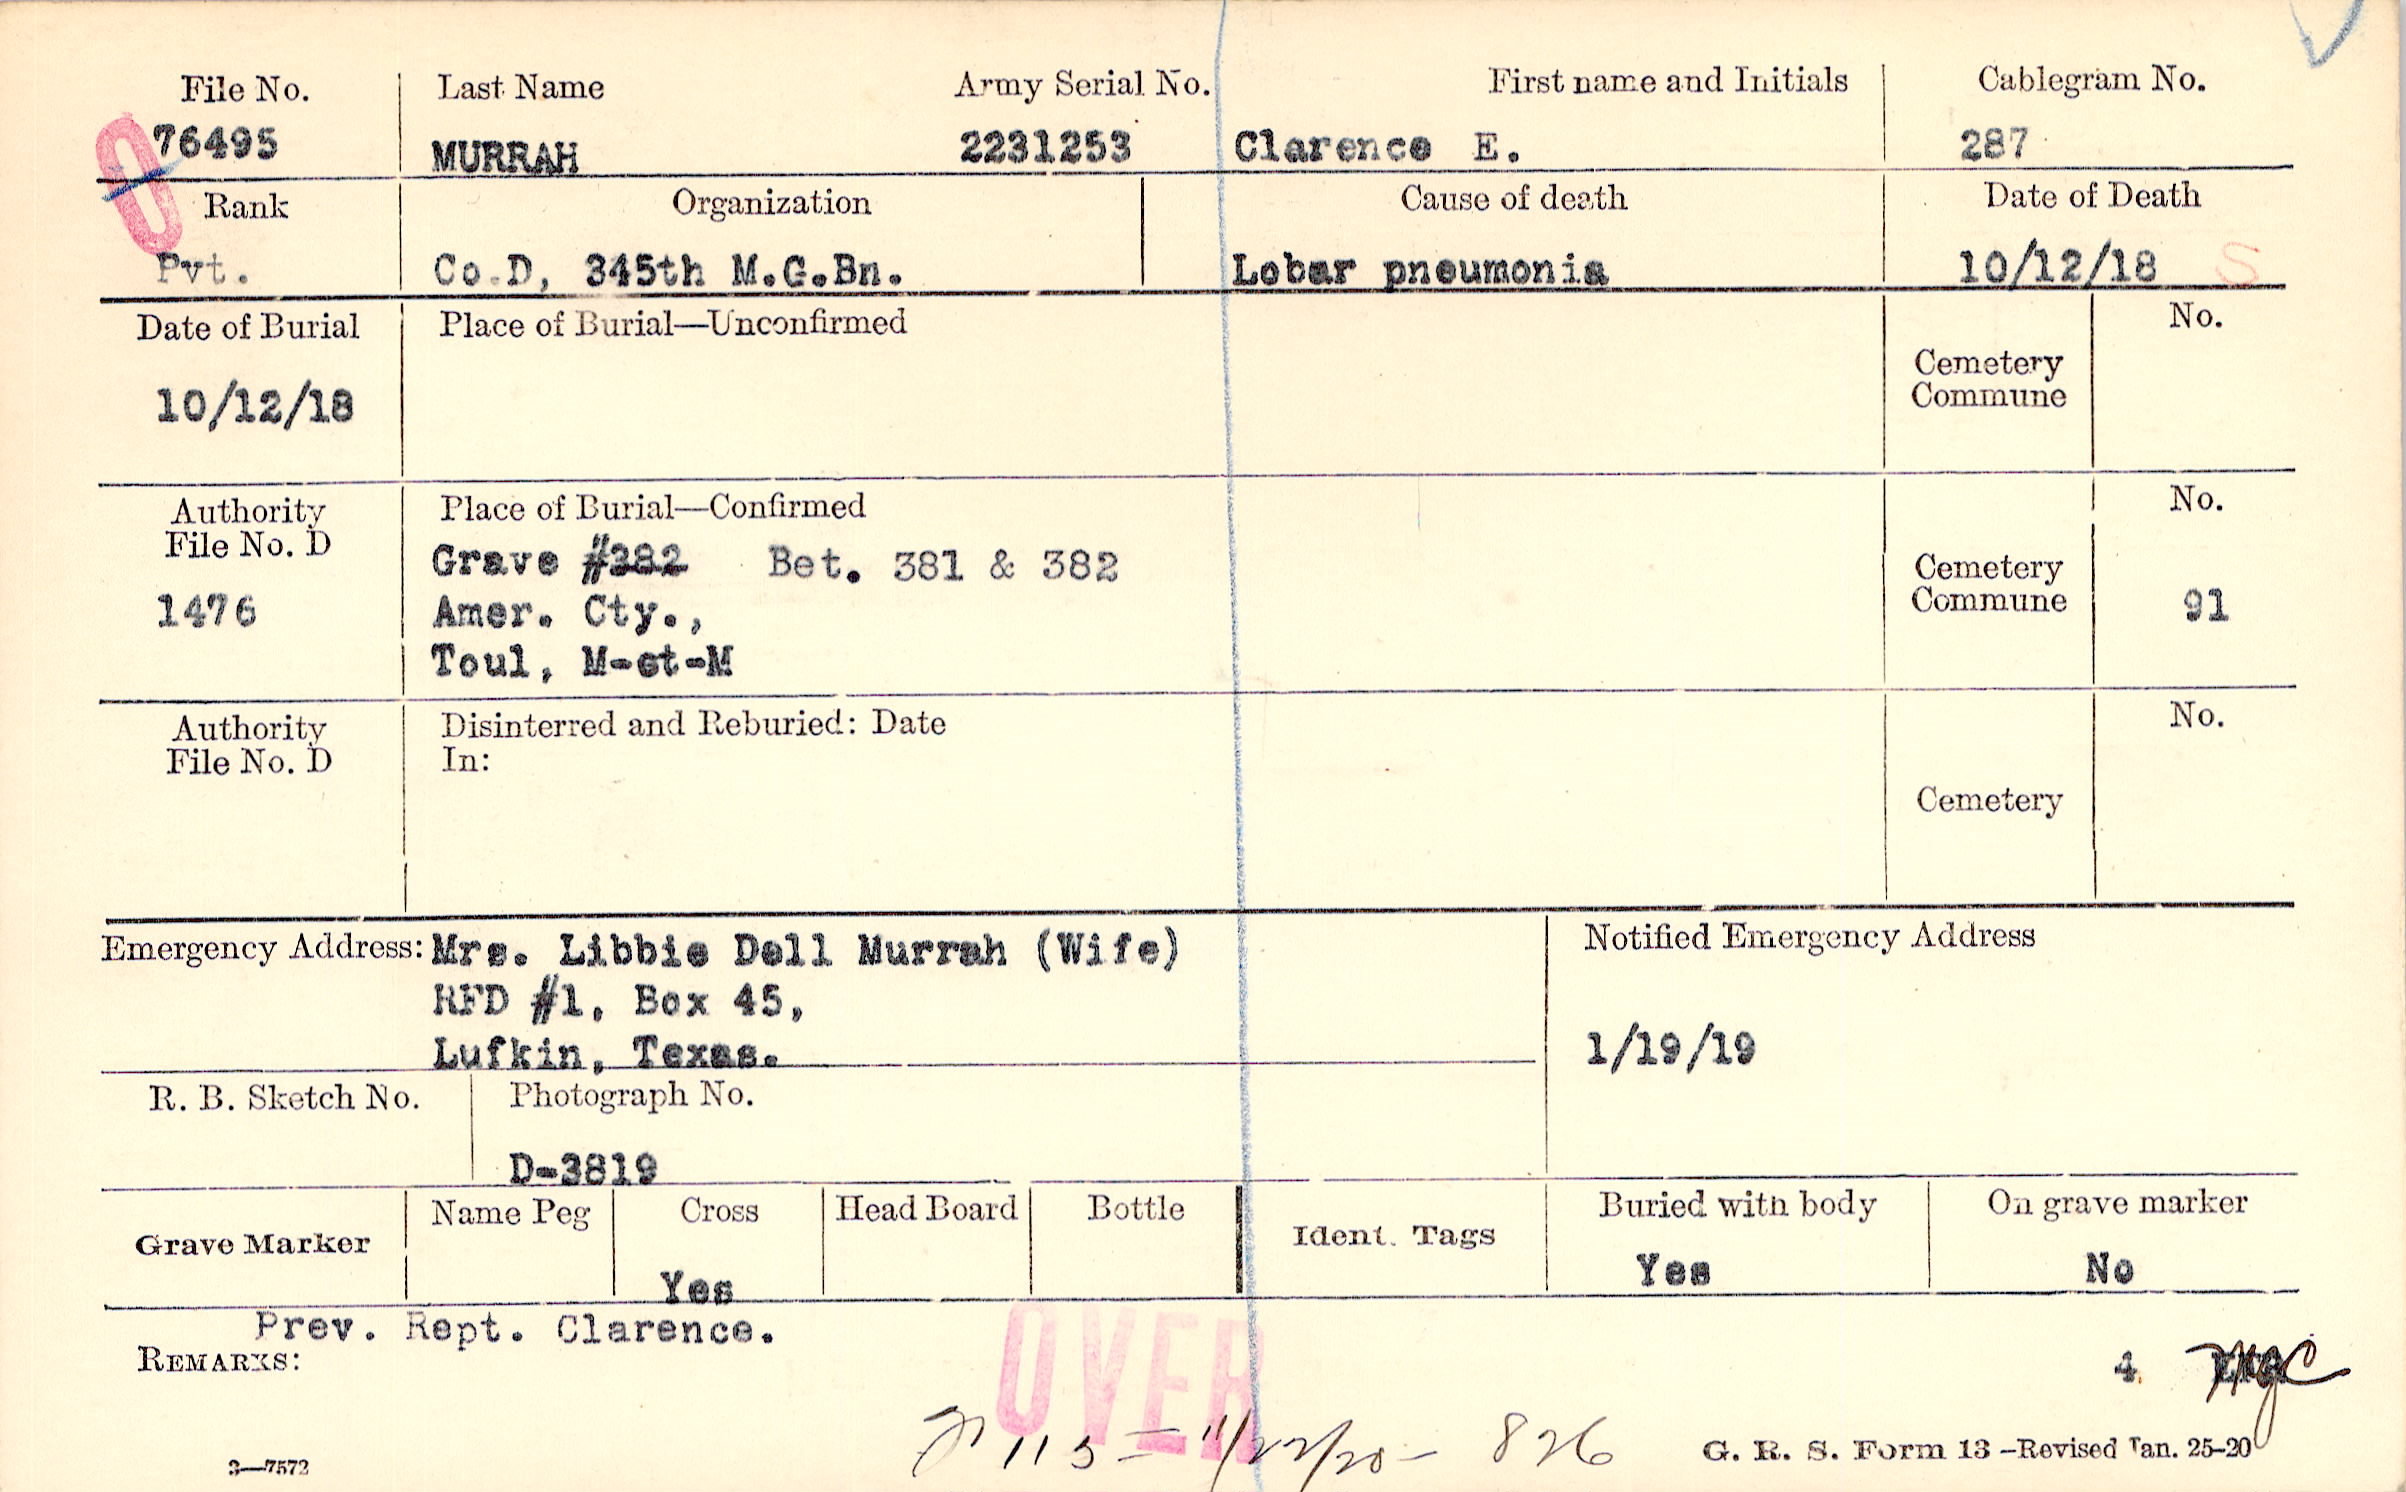 File No. Last Name Army Serial No. First name and Initials Cablegram No.
76495 MURRAH 2231253 Clarence E. 287
O
Rank Organization Cause of death Date of Death
Pvt. Co.D, 345th M.G.Bn. Lobar pneumonia 10/12/18 S
Date of Burial Place of Burial—Unconfirmed No.
Cemetery
Commune
10/12/18
Authority Place of Burial—Confirmed No.
File No. D
Grave #382 Bet. 381 & 382 Cemetery
1476 Amer. Cty., Commune 91
Toul, M-et-M
Authority Disinterred and Reburied: Date No.
File No. D In:
Cemetery
Emergency Address: Mrs. Libbie Dell Murrah (Wife) Notified Emergency Address
RFD #1, Box 45,
Lufkin, Texas. 1/19/19
R. B. Sketch No. Photograph No.
D-3819
Name Peg Cross Head Board Bottle Buried with body On grave marker
Grave Marker Ident. Tags
Yes Yes No
Prev. Rept. Clarence.
REMARKS:
OVER
4
115 = 11/22/20 - 826
3—7572 G. R. S. Form 13 -Revised Jan. 25-20